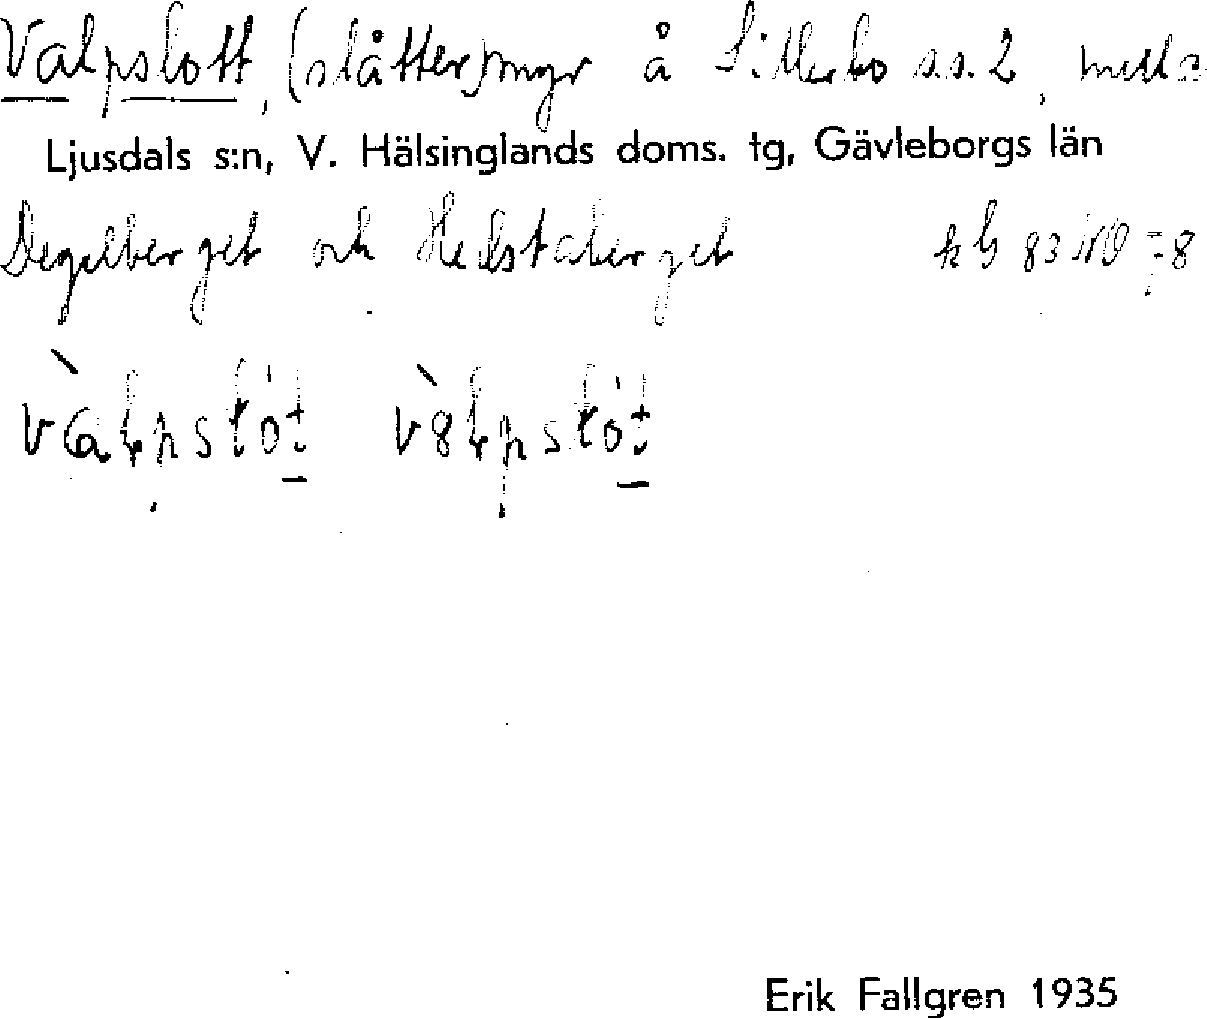 Valpslott, (slåtter)myr å Sillerbo s.s. 2, mella
Ljusdals s:n, V. Hälsinglands doms. tg, Gävleborgs län
Degelberget och Hedstaberget kb 83 NO 78
Erik Fallgren 1935